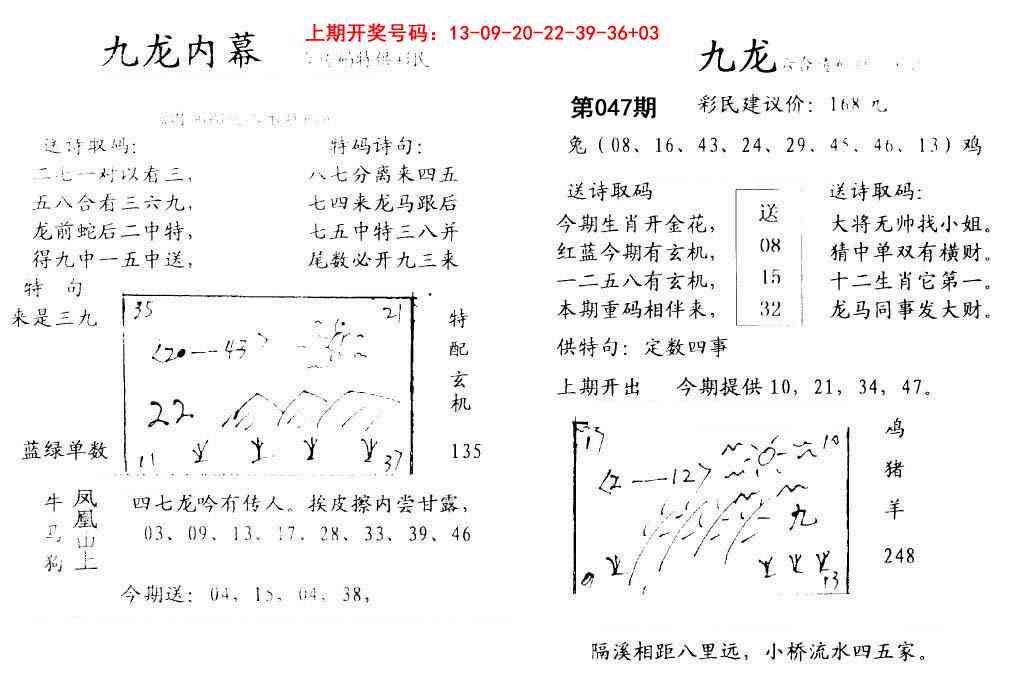 上期开奖号码：13-09-20-22-39-36+03
九龙内幕
送诗取码：
二七一对以有三，
五八合有三六九，
龙前蛇后二中特，
得九中一五中送，
特码诗句：
八七分离来四五
七四来龙马跟后
七五中特三八并
尾数必开九三来
特 句
来是三九
蓝绿单数
35 21
<20—43>
22
11 37
特配玄机
135
牛马狗
凤凰山上
四七龙吟有传人。挨皮擦内尝甘露，
03、09、13、17、28、33、39、46
今期送：04，15，04，38，
九龙
第047期 彩民建议价：168元
兔（08、16、43、24、29、45、46、13）鸡
送诗取码
今期生肖开金花，
红蓝今期有玄机，
一二五八有玄机，
本期重码相伴来，
送
08
15
32
送诗取码：
大将无帅找小姐。
猜中单双有横财。
十二生肖它第一。
龙马同事发大财。
供特句：定数四事
上期开出 今期提供10，21，34，47。
17 10
<2—12>
九
9 13
鸡
猪
羊
248
隔溪相距八里远，小桥流水四五家。